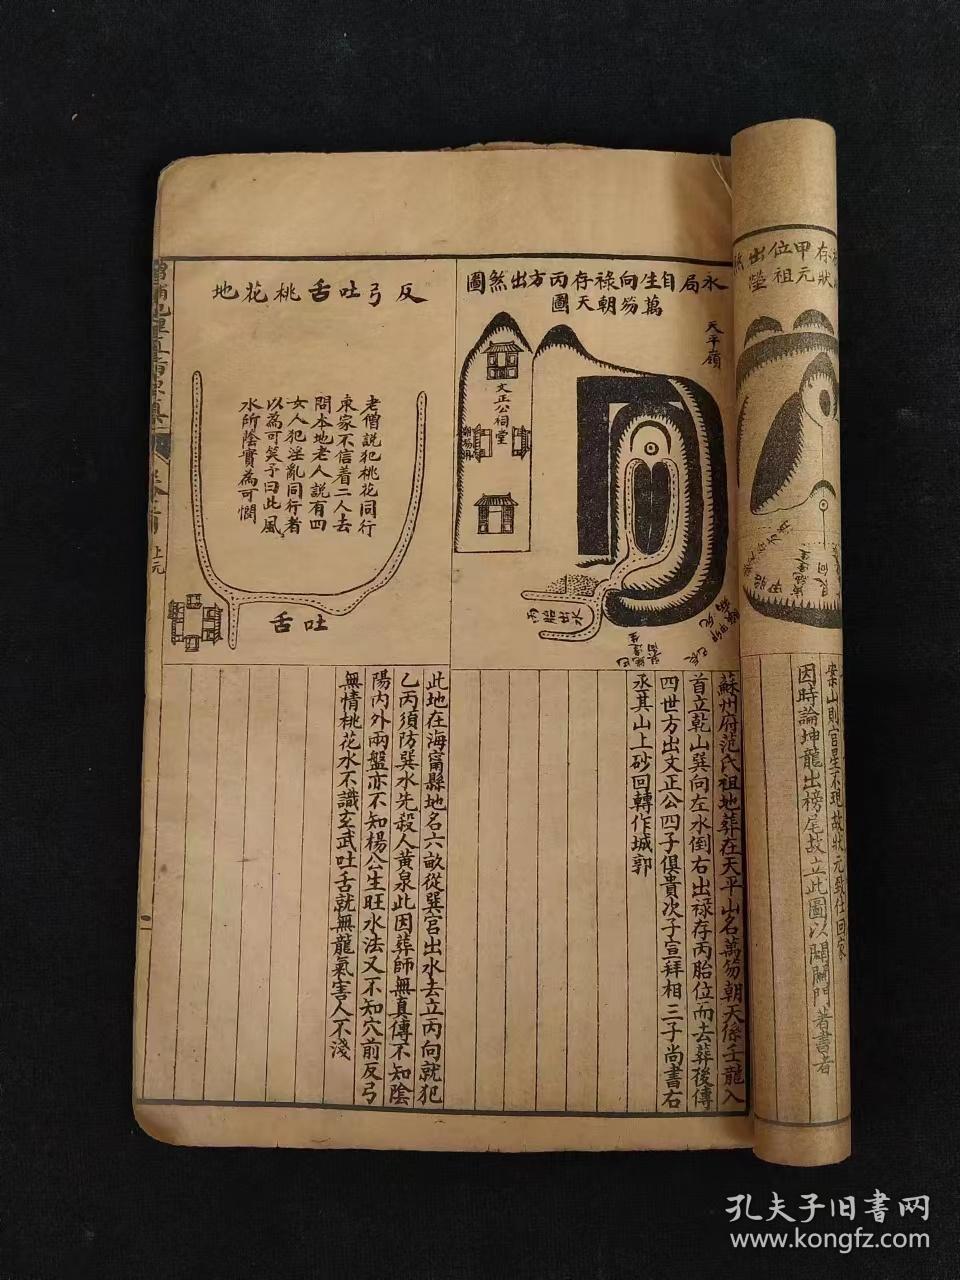 水局自生向祿存丙方出煞圖
萬笏朝天圖
天平嶺
文正公祠堂
蘇州府范氏祖地葬在天平山名萬笏朝天係壬龍入
首立乾山巽向左水倒右出祿存丙胎位而去葬後傳
四世方出文正公四子俱貴次子宣拜相三子尚書右
丞其山上砂回轉作城郭
反弓吐舌桃花地
老僧說犯桃花同行
東家不信着二人去
問本地老人說有四
女人犯淫亂同行者
以為可笑予曰此風
水所陰實為可憫
吐舌
此地在海甯縣地名六畝從巽宮出水去立丙向就犯
乙丙須防巽水先殺人黃泉此因葬師無真傳不知陰
陽內外兩盤亦不知楊公生旺水法又不知穴前反弓
無情桃花水不識玄武吐舌就無龍氣害人不淺
案山則官星不現故狀元致仕回家
因時論坤龍出榜尾故立此圖以闢闢門著書者
上元
孔夫子旧書网
www.kongfz.com